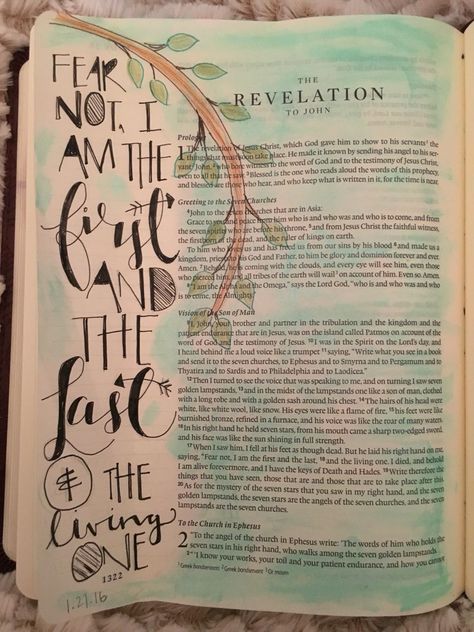 FEAR
NOT, I
AM THE
first
AND
THE
last
& THE
living
ONE
1322
1.27.16
THE
REVELATION
TO JOHN
Prologue
1 The revelation of Jesus Christ, which God gave him to show to his servants the
things that must soon take place. He made it known by sending his angel to his ser-
vant John, who bore witness to the word of God and to the testimony of Jesus Christ,
even to all that he saw. Blessed is the one who reads aloud the words of this prophecy,
and blessed are those who hear, and who keep what is written in it, for the time is near.
Greeting to the Seven Churches
4 John to the seven churches that are in Asia:
Grace to you and peace from him who is and who was and who is to come, and from
the seven spirits who are before his throne, 5 and from Jesus Christ the faithful witness,
the firstborn of the dead, and the ruler of kings on earth.
To him who loves us and has freed us from our sins by his blood 6 and made us a
kingdom, priests to his God and Father, to him be glory and dominion forever and ever.
Amen. 7 Behold, he is coming with the clouds, and every eye will see him, even those
who pierced him, and all tribes of the earth will wail on account of him. Even so. Amen.
8 "I am the Alpha and the Omega," says the Lord God, "who is and who was and who
is to come, the Almighty."
Vision of the Son of Man
9 I, John, your brother and partner in the tribulation and the kingdom and the
patient endurance that are in Jesus, was on the island called Patmos on account of the
word of God and the testimony of Jesus. 10 I was in the Spirit on the Lord's day, and
I heard behind me a loud voice like a trumpet 11 saying, "Write what you see in a book
and send it to the seven churches, to Ephesus and to Smyrna and to Pergamum and to
Thyatira and to Sardis and to Philadelphia and to Laodicea."
12 Then I turned to see the voice that was speaking to me, and on turning I saw seven
golden lampstands, 13 and in the midst of the lampstands one like a son of man, clothed
with a long robe and with a golden sash around his chest. 14 The hairs of his head were
white, like white wool, like snow. His eyes were like a flame of fire, 15 his feet were like
burnished bronze, refined in a furnace, and his voice was like the roar of many waters.
16 In his right hand he held seven stars, from his mouth came a sharp two-edged sword,
and his face was like the sun shining in full strength.
17 When I saw him, I fell at his feet as though dead. But he laid his right hand on me,
saying, "Fear not, I am the first and the last, 18 and the living one. I died, and behold
I am alive forevermore, and I have the keys of Death and Hades. 19 Write therefore the
things that you have seen, those that are and those that are to take place after this.
20 As for the mystery of the seven stars that you saw in my right hand, and the seven
golden lampstands, the seven stars are the angels of the seven churches, and the seven
lampstands are the seven churches.
To the Church in Ephesus
2 "To the angel of the church in Ephesus write: 'The words of him who holds the
seven stars in his right hand, who walks among the seven golden lampstands.
2 "'I know your works, your toil and your patient endurance, and how you cannot
1 Greek bondservants 2 Greek bondservant 3 Or